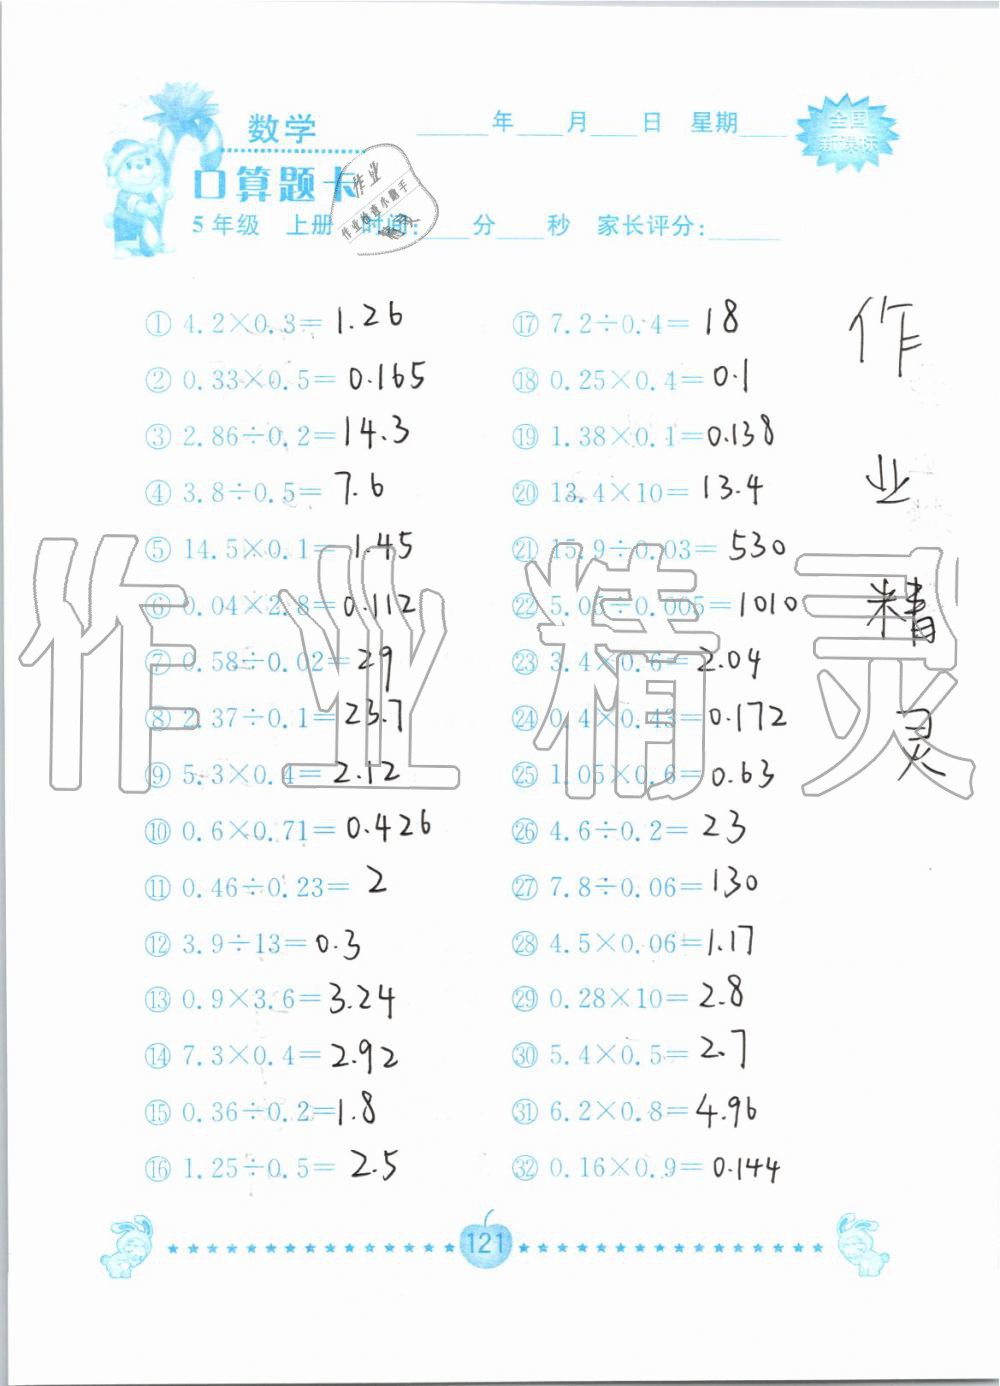 数学
____年____月____日 星期____
全国
新课标
口算题卡
5年级 上册 时间:____分____秒 家长评分:____
作业
作业检查小助手
① 4.2×0.3= 1.26
② 0.33×0.5= 0.165
③ 2.86÷0.2= 14.3
④ 3.8÷0.5= 7.6
⑤ 14.5×0.1= 1.45
⑥ 0.04×2.8= 0.112
⑦ 0.58÷0.02= 29
⑧ 2.37÷0.1= 23.7
⑨ 5.3×0.4= 2.12
⑩ 0.6×0.71= 0.426
⑪ 0.46÷0.23= 2
⑫ 3.9÷13= 0.3
⑬ 0.9×3.6= 3.24
⑭ 7.3×0.4= 2.92
⑮ 0.36÷0.2= 1.8
⑯ 1.25÷0.5= 2.5
⑰ 7.2÷0.4= 18
⑱ 0.25×0.4= 0.1
⑲ 1.38×0.1= 0.138
⑳ 13.4×10= 13.4
㉑ 15.9÷0.03= 530
㉒ 5.05÷0.005= 1010
㉓ 3.4×0.6= 2.04
㉔ 0.4×0.43= 0.172
㉕ 1.05×0.6= 0.63
㉖ 4.6÷0.2= 23
㉗ 7.8÷0.06= 130
㉘ 4.5×0.06= 1.17
㉙ 0.28×10= 2.8
㉚ 5.4×0.5= 2.7
㉛ 6.2×0.8= 4.96
㉜ 0.16×0.9= 0.144
作
业
精
灵
作业精灵
121